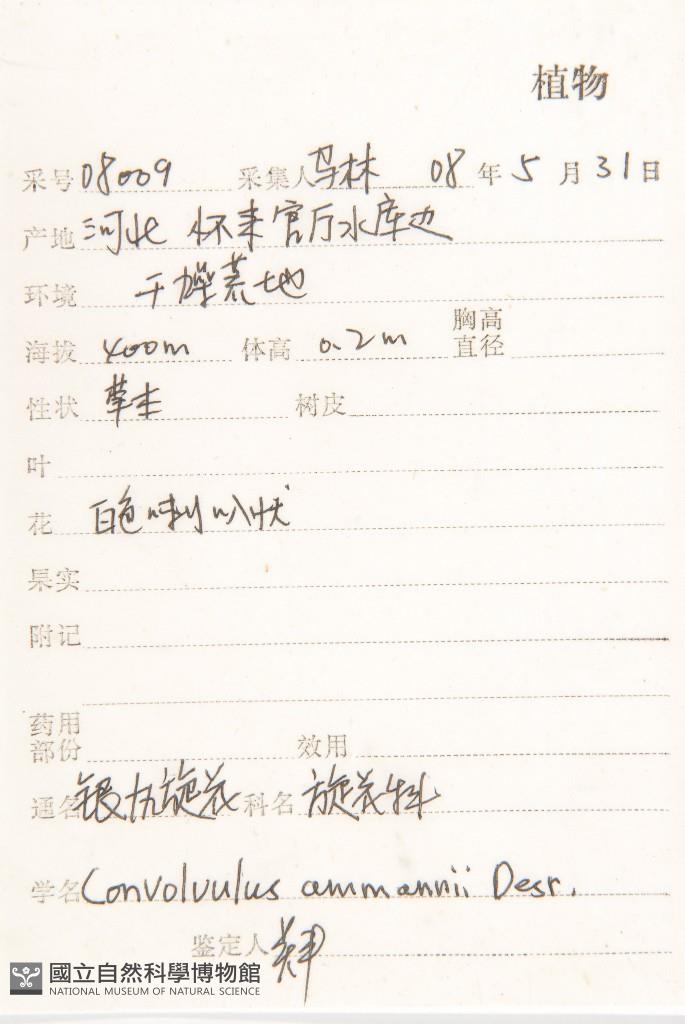 植物
采号 08009 采集人 马林 08 年 5 月 31 日
产地 河北 怀来官厅水库边
环境 干燥荒地
海拔 400m 体高 0.2m 胸高直径
性状 草本 树皮
叶
花 白色喇叭状
果实
附记
药用部份 效用
通名 银灰旋花 科名 旋花科
学名 Convolvulus ammannii Desr.
鉴定人
國立自然科學博物館
NATIONAL MUSEUM OF NATURAL SCIENCE